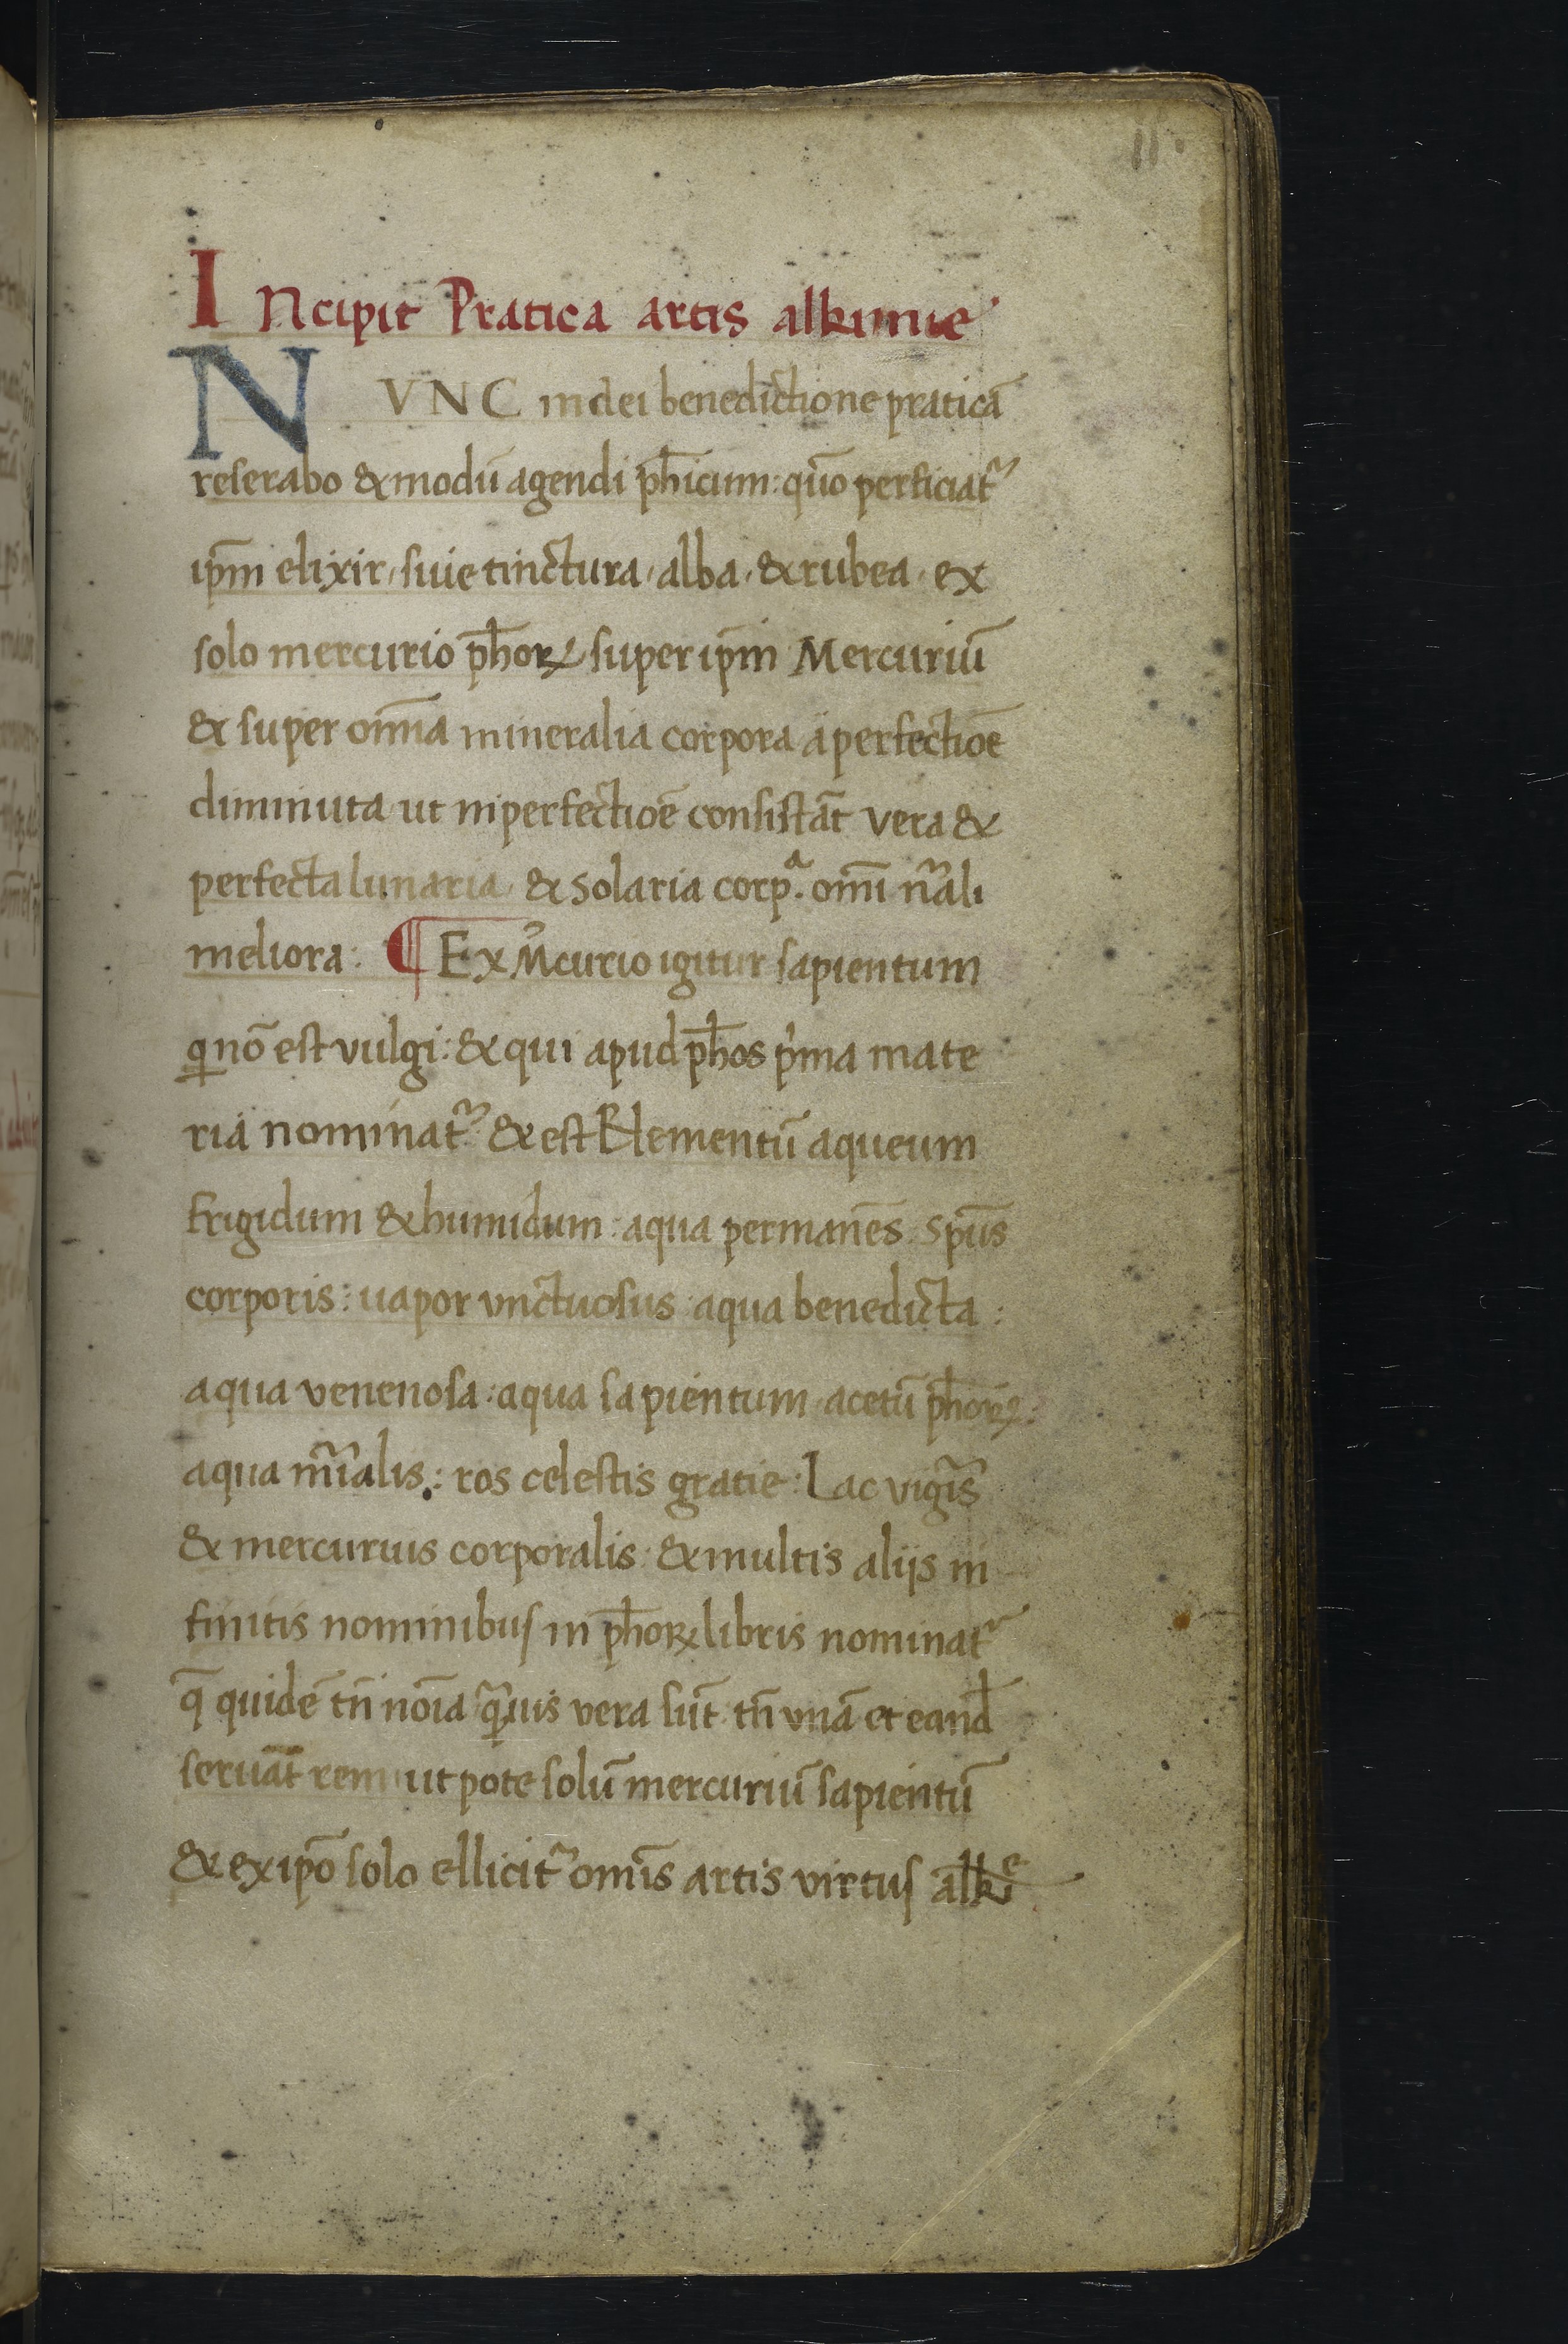 11.
Incipit Pratica artis alkimie
NVNC in dei benedictione praticā
reserabo & modū agendi ph̄icum: quō perficiatᷣ
ip̄m elixir, siue tinctura, alba, & rubea, ex
solo mercurio ph̄oꝝ super ip̄m Mercuriū
& super om̄ia mineralia corpora a perfectiōe
diminuta ut in perfectiōe consistāt vera &
perfecta lunaria & solaria corpᵃ. om̄i nr̄ali
meliora: ¶ Ex M̓curio igitur sapientum
ꝗ nō est vulgi: & qui apud ph̄os pⁱma mate
ria nominatᷣ & est Elementū aqueum
frigidum & humidum: aqua permanēs. sp̄us
corporis: uapor vnctuosus aqua benedicta:
aqua venenosa: aqua sapientum acetū ph̄oꝝ:
aqua mīalis: ros celestis gratie: Lac vigīs
& mercurius corporalis: & multis alijs in
finitis nominibus in ph̄oꝝ libris nominatᷣ
q̄ quidē tn̄ noīa q̄uis vera sūt tn̄ vnā et eand̄
seruāt rem ut pote solū mercuriū sapientū
& ex ip̄o solo ellicitᷣ om̄is artis virtus alkⁱᵉ